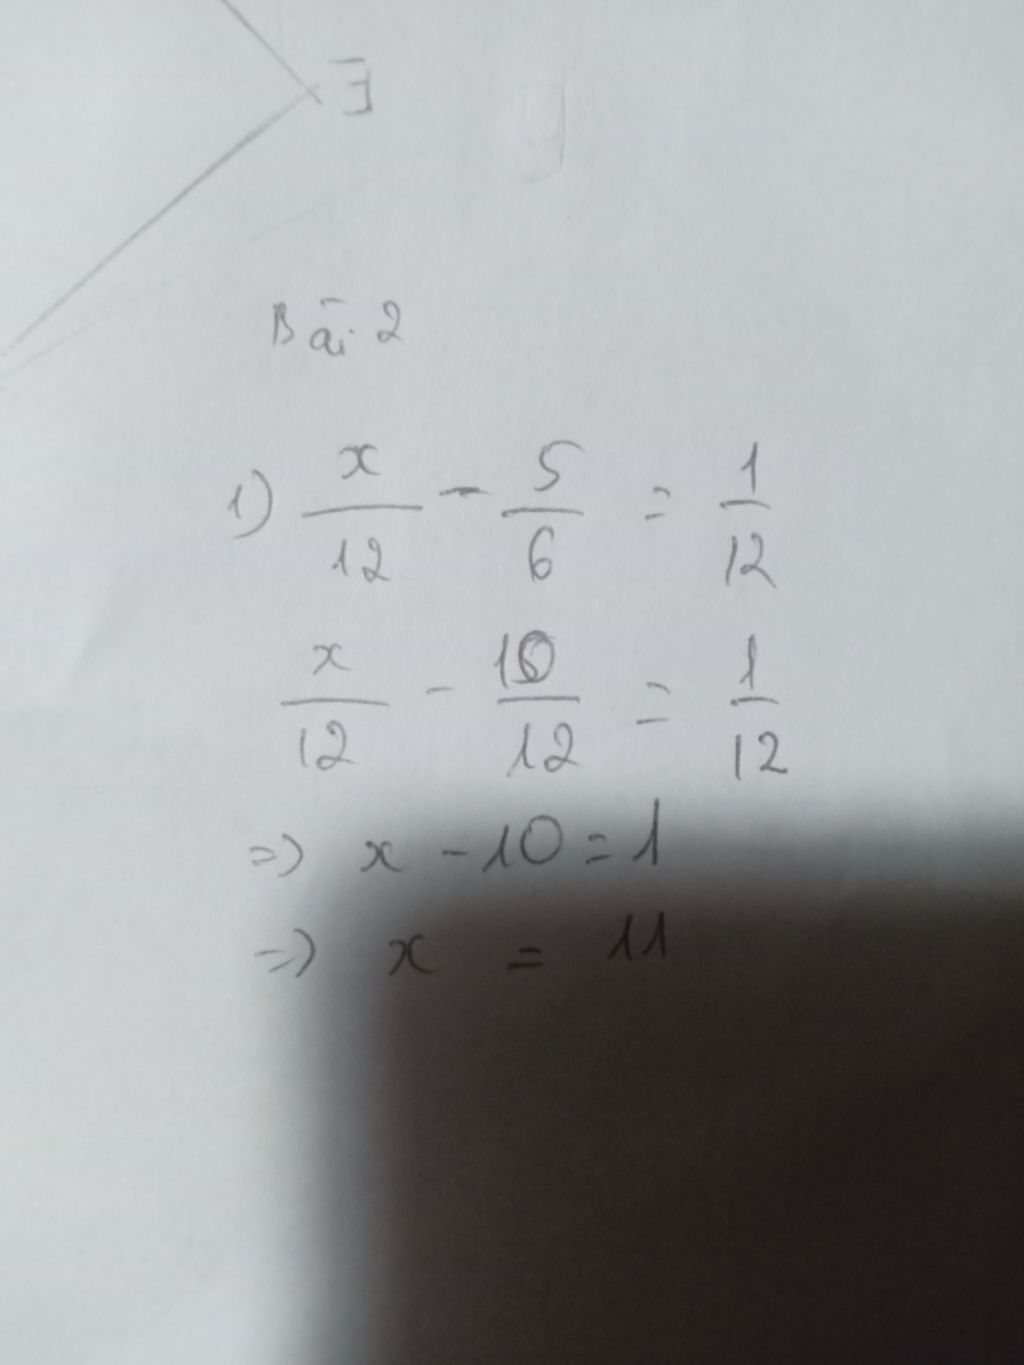 E
Bài 2
1) x/12 - 5/6 = 1/12
x/12 - 10/12 = 1/12
=> x - 10 = 1
=> x = 11